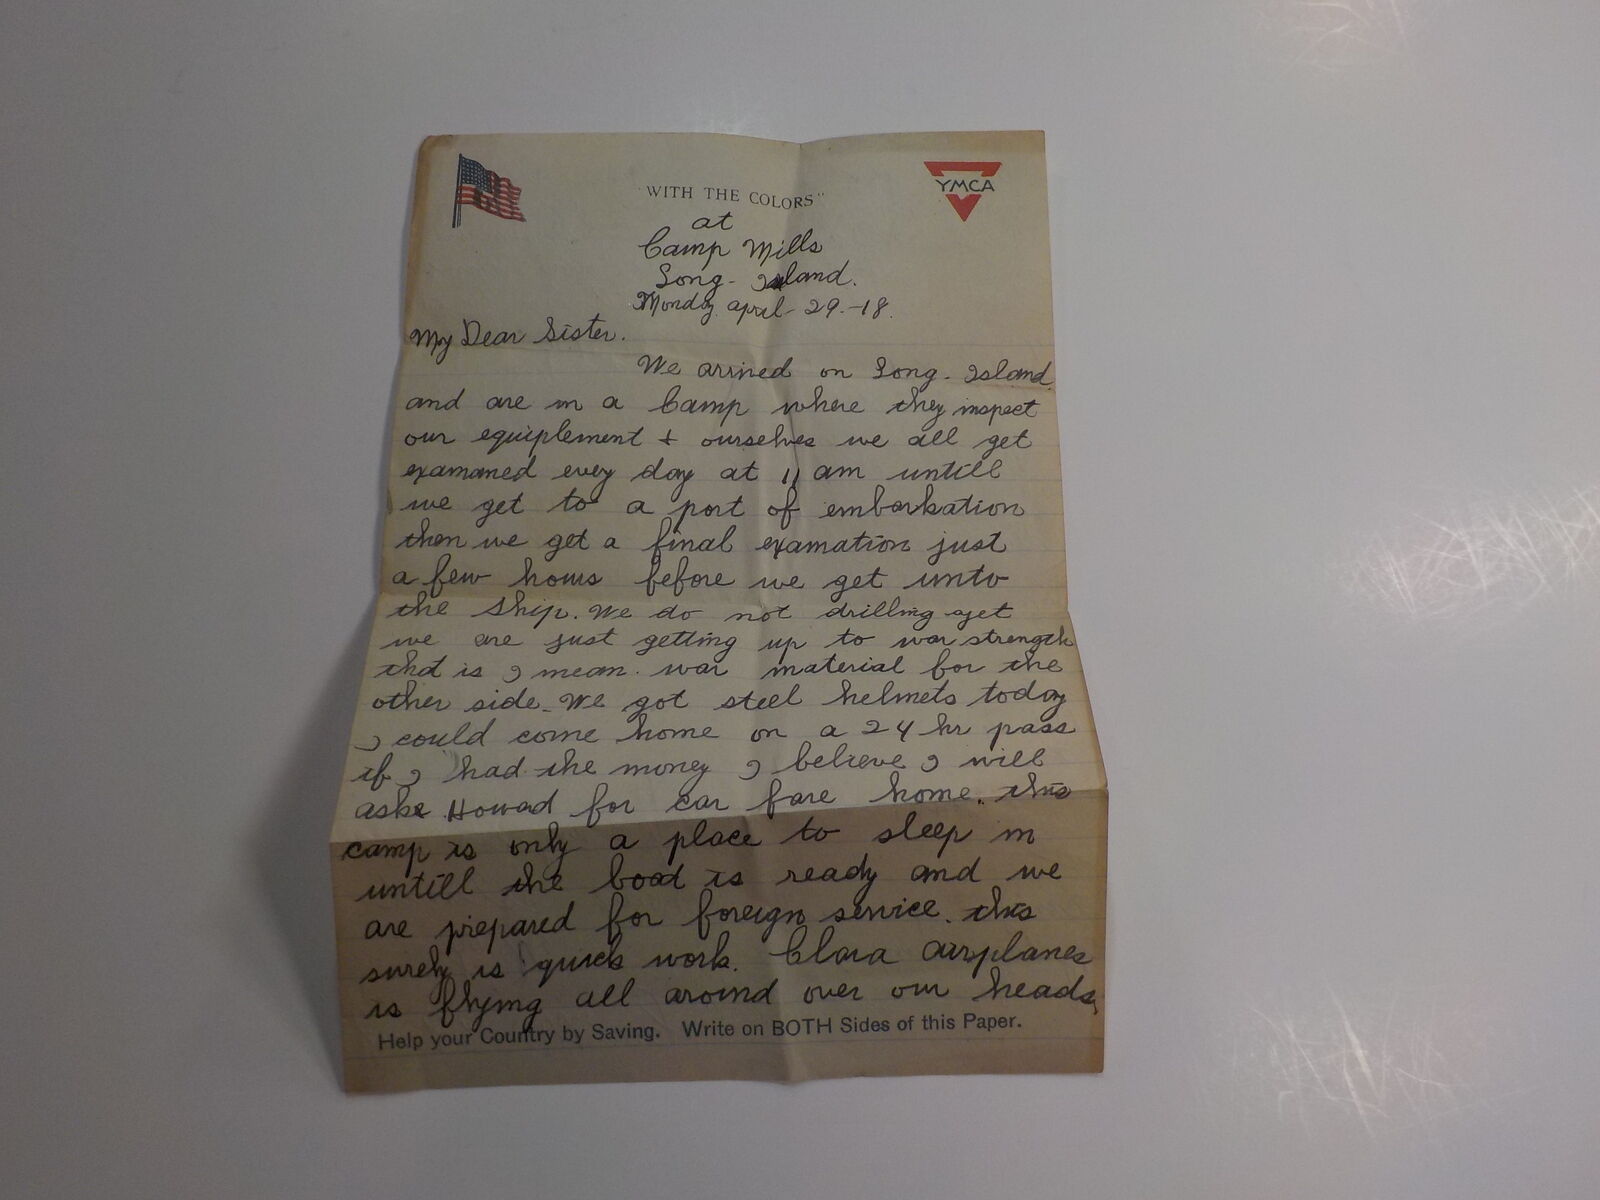 "WITH THE COLORS"
YMCA
at
Camp Mills
Long - Island.
Monday april - 29. - 18.
My Dear Sister.
We arrived on Long - Island
and are in a Camp where they inspect
our equiplement + ourselves we all get
examaned every day at 11 am untill
we get to a port of embarkation
then we get a final examation just
a few hours before we get unto
the ship. We do not drilling yet
we are just getting up to war strength
that is I mean. war material for the
other side. We got steel helmets today
I could come home on a 24 hr pass
if I had the money I believe I will
aske Howad for car fare home. this
camp is only a place to sleep in
untill the boat is ready and we
are prepared for foreign service. this
surely is quick work. Clara airplanes
is flying all around over our heads,
Help your Country by Saving. Write on BOTH Sides of this Paper.